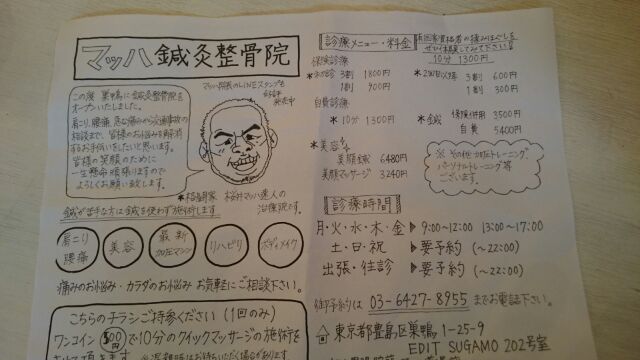 マッハ鍼灸整骨院
この度 巣鴨に鍼灸整骨院を
オープンいたしました。
肩こり、腰痛、急な痛みから交通事故の
相談まで、皆様のお悩みを解消
するお手伝いをしたいと思います。
皆様の笑顔のために
一生懸命頑張りますので
よろしくお願い致します。
マッハ院長のLINEスタンプも
発売中
*格闘家 桜井マッハ速人の
治療院です。
鍼が苦手な方は鍼を使わず施術します
肩こり
腰痛
美容
最新
加圧マシン
リハビリ
ボディメイク
痛みのお悩み・カラダのお悩み お気軽にご相談下さい。
こちらのチラシご持参ください(1回のみ)
ワンコイン500円で10分のクイックマッサージの施術を
診療メニュー・料金
ぜひ体験してみて下さい!!
10分 1300円
保険診療
*初診 3割 1800円
1割 900円
*2回目以降 3割 600円
1割 300円
自費診療
*10分 1300円
*鍼 保険併用 3500円
自費 5400円
*美容
美顔鍼 6480円
美顔マッサージ 3240円
※その他加圧トレーニング
パーソナルトレーニング等
ございます。
診療時間
月・火・水・木・金 ▶ 9:00~12:00 13:00~17:00
土・日・祝 ▶ 要予約 (~22:00)
出張・往診 ▶ 要予約 (~22:00)
御予約は 03-6427-8955 までお電話下さい。
東京都豊島区巣鴨 1-25-9
EDIT SUGAMO 202号室